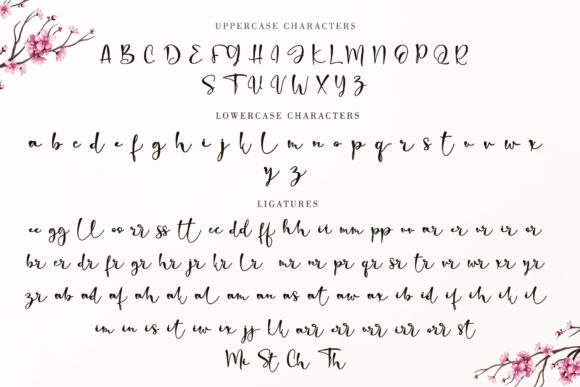 UPPERCASE CHARACTERS
A B C D E F G H I J K L M N O P Q R
S T U V W X Y Z
LOWERCASE CHARACTERS
a b c d e f g h i j k l m n o p q r s t u v w x
y z
LIGATURES
ee gg ll oo rr ss tt cc dd ff hh ii mm pp uu ar er ur ir or
br cr dr fr gr hr jr kr lr mr nr pr qr sr tr vr wr xr yr
zr ab ad af ah ak al am an as at aw ax ib id if ih ik il
im in is it iw ix jj kk arr err urr irr orr st
Mc St Ch Th